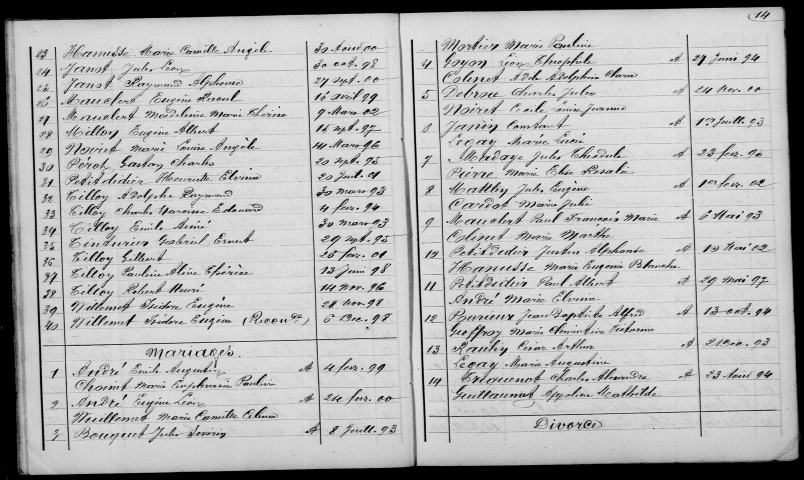 23 Hanusse Marie Camille Angèle 30 Aout 00
24 Janst Jules Léon 30 oct. 98
25 Janst Raymond Alphonse 27 sept. 00
26 Mauclert Eugène Raoul 16 avril 99
27 Mauclert Madeleine Marie Thérèse 9 Mars 02
28 Millon Eugène Albert 15 sept. 97
29 Noiret Marie Louise Angèle 14 Mars 96
30 Pérot Gaston Charles 20 sept. 95
31 Petitdidier Henriette Elvina 20 Juil. 01
32 Tilloy Adolphe Raymond 30 mars 93
33 Tilloy Charles Edouard 4 fev. 94
34 Tilloy Emile Aimé 30 mars 93
35 Tinturier Gabriel Ernest 29 sept. 95
36 Tilloy Gilbert 25 fev. 01
37 Tilloy Pauline Aline Thérèse 13 Juin 98
38 Tilloy Robert Henri 14 nov. 96
39 Willemet Isidore Eugène 28 nov. 98
40 Willemet Isidore Eugène (Recon.ce) 6 Dec. 98
Mariages.
1 André Emile Augustin A 4 fev. 99
Marie Euphrasie Pauline
2 André Eugène Léon A 24 fev. 00
Marie Camille Célina
3 Bouquet Jules Séverin A 8 Juill. 93
14
Mortier Marie Pauline
4 Guyon Léon Théophile A 27 Juin 94
Colinet Adèle Adolphine Clara
5 Debrou Charles Jules A 24 nov. 00
Noiret Cécile Louise Jeanne
6 Janin Constant A 1er Juill. 93
Legay Marie Lucie
7 Jules Théodule A 23 fev.
Pierre Marie Elise Rosalie
8 Jules Eugène A 1er fev. 02
Cardot Marie Julie
9 Mauclert Paul François Marie A 6 Mai 93
Colinet Marie Marthe
10 Petitdidier Justin Alphonse A Mai 02
Hanusse Marie Eugénie Blanche
11 Petitdidier Paul Albert A 29 mai 97
André Marie Elvina
12 Jean Baptiste Alfred A 13 oct. 94
Geoffroy Marie Clémentine Victorine
13 César Arthur A 2 Dec. 93
Legay Marie Augustine
14 Charles Alexandre A 23 Aout 94
Guillaumot Appoline Mathilde
Divorce